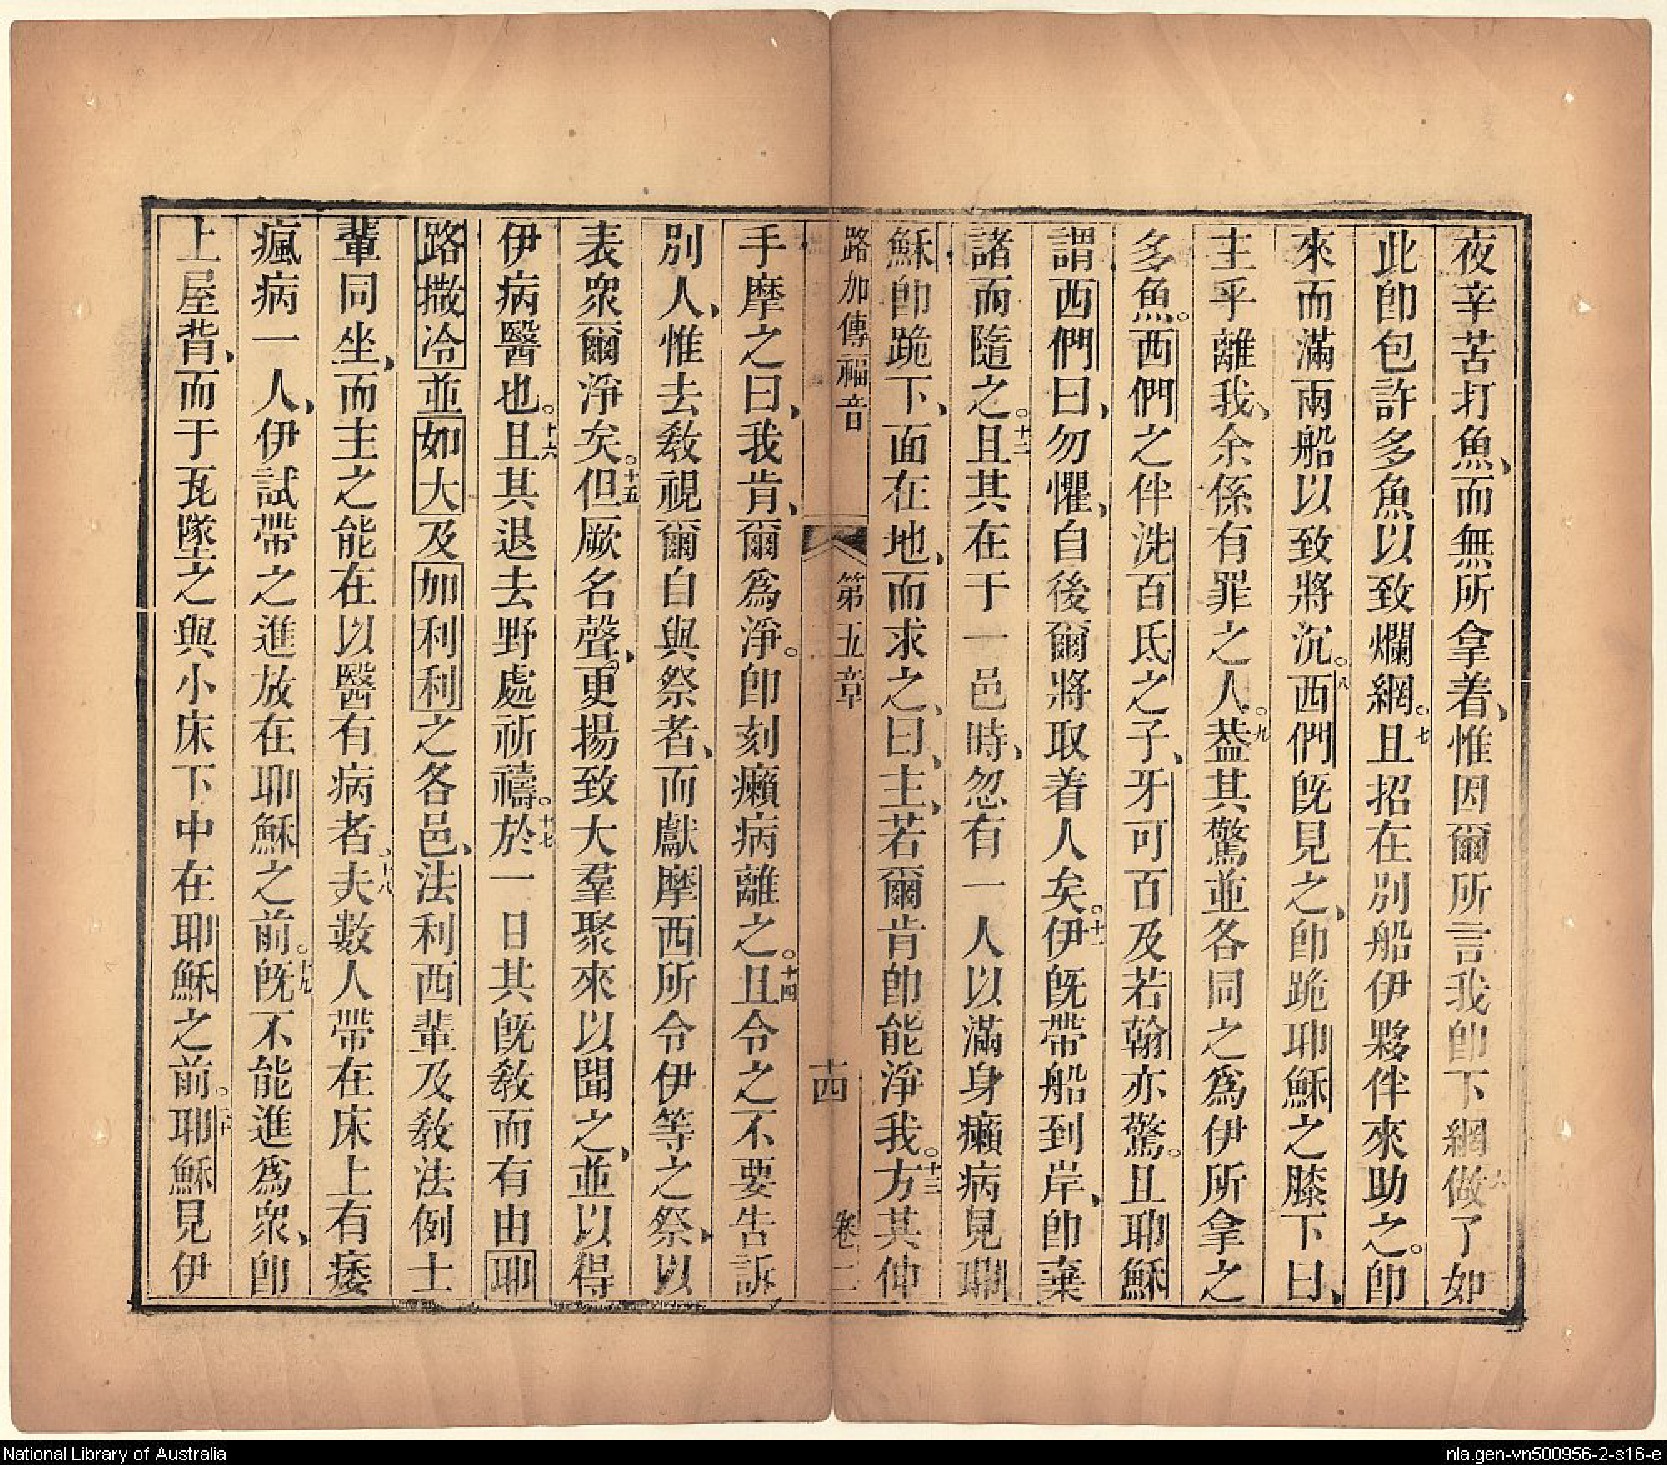 夜辛苦打魚、而無所拿着、惟因爾所言我卽下網做了如
六
此卽包許多魚以致爛網。七且招在别船伊夥伴來助之。卽
來而滿兩船以致將沉。八西們旣見之、卽跪耶穌之膝下曰、
主乎離我、余係有罪之人。九蓋其驚並各同之爲伊所拿之
多魚。西們之伴洗百氐之子、牙可百及若翰亦驚。且耶穌
謂西們曰、勿懼、自後爾將取着人矣。十一伊旣帶船到岸、卽棄
諸而隨之。十二且其在于一邑時、忽有一人以滿身癩病見耶
穌卽跪下、面在地、而求之、曰、主、若爾肯卽能淨我。十三方其伸
路加傳福音 第五章 十四 卷二
手摩之曰、我肯、爾爲淨。卽刻癩病離之。十四且令之不要告訴
别人、惟去教視爾自與祭者、而獻摩西所令伊等之祭、以
表衆爾淨矣。十五但厥名聲、更揚致大羣聚來以聞之、並以得
伊病醫也。十六且其退去野處祈禱。十七於一日其旣教而有由耶
路撒冷並如大及加利利之各邑、法利西輩及教法例士
輩同坐、而主之能在以醫有病者、十八夫數人帶在床上有痿
瘋病一人、伊試帶之進放在耶穌之前。十九旣不能進爲衆、卽
上屋背、而于瓦墜之與小床下中在耶穌之前。二十耶穌見伊
National Library of Australia
nla.gen-vn500956-2-s16-e